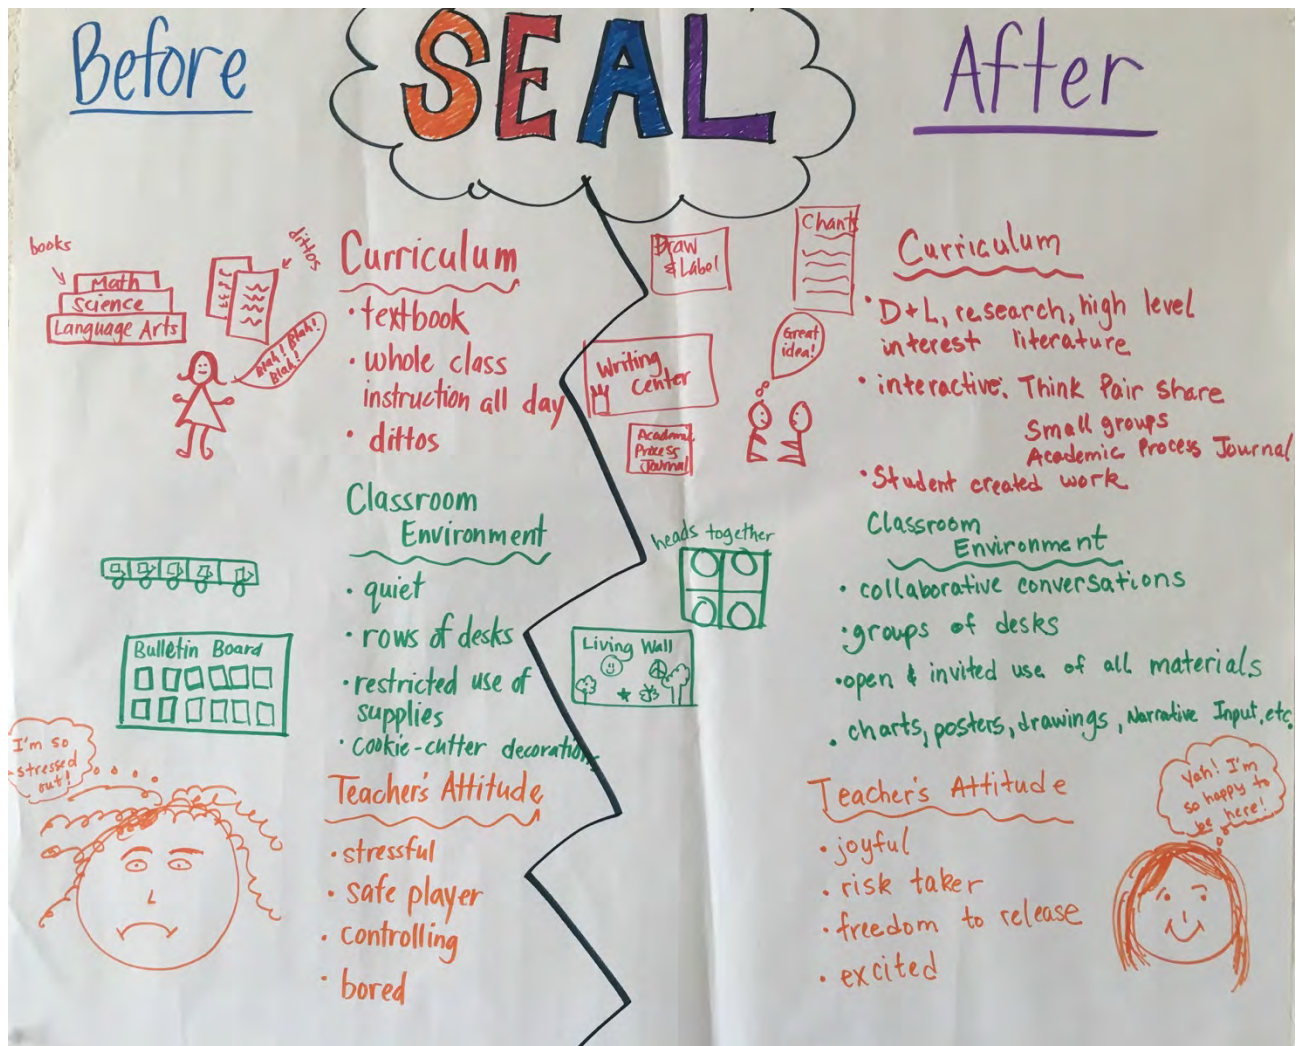 Before
SEAL
After
books
dittos
Math
Science
Language Arts
Blah! Blah!
Blah!
Curriculum
• textbook
• whole class
instruction all day
• dittos
Classroom
Environment
• quiet
• rows of desks
• restricted use of
supplies
• cookie-cutter decorations
Bulletin Board
Teacher's Attitude
• stressful
• safe player
• controlling
• bored
I'm so
stressed
out!
Draw
& Label
Chants
Writing
center
Great
idea!
Academic
Process
Journal
Curriculum
• D+L, research, high level
interest literature
• interactive: Think Pair Share
Small groups
Academic Process Journal
• Student created work
heads together
Living Wall
Classroom
Environment
• collaborative conversations
• groups of desks
• open & invited use of all materials
• charts, posters, drawings, Narrative Input, etc.
Teacher's Attitude
• joyful
• risk taker
• freedom to release
• excited
Yah! I'm
so happy to
be here!